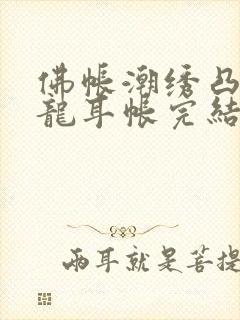 佛帐潮绣凸
龍耳帐完結
兩耳就是菩提